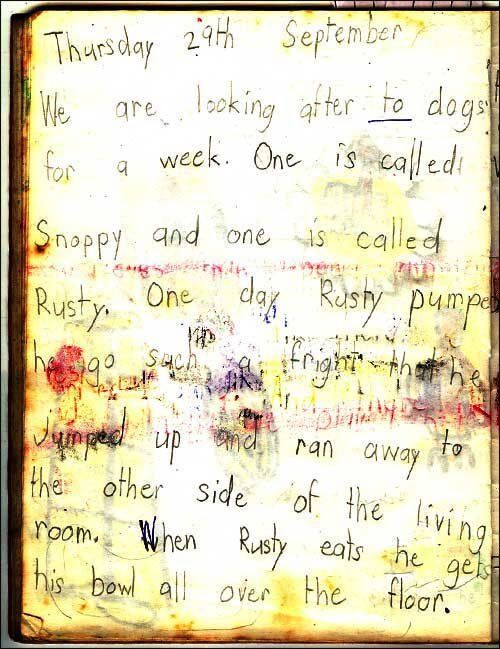 Thursday 29th September
We are looking after to dogs
for a week. One is called
Snoppy and one is called
Rusty. One day Rusty pumpe
he go such a fright that he
jumped up and ran away to
the other side of the living
room. When Rusty eats he gets
his bowl all over the floor.